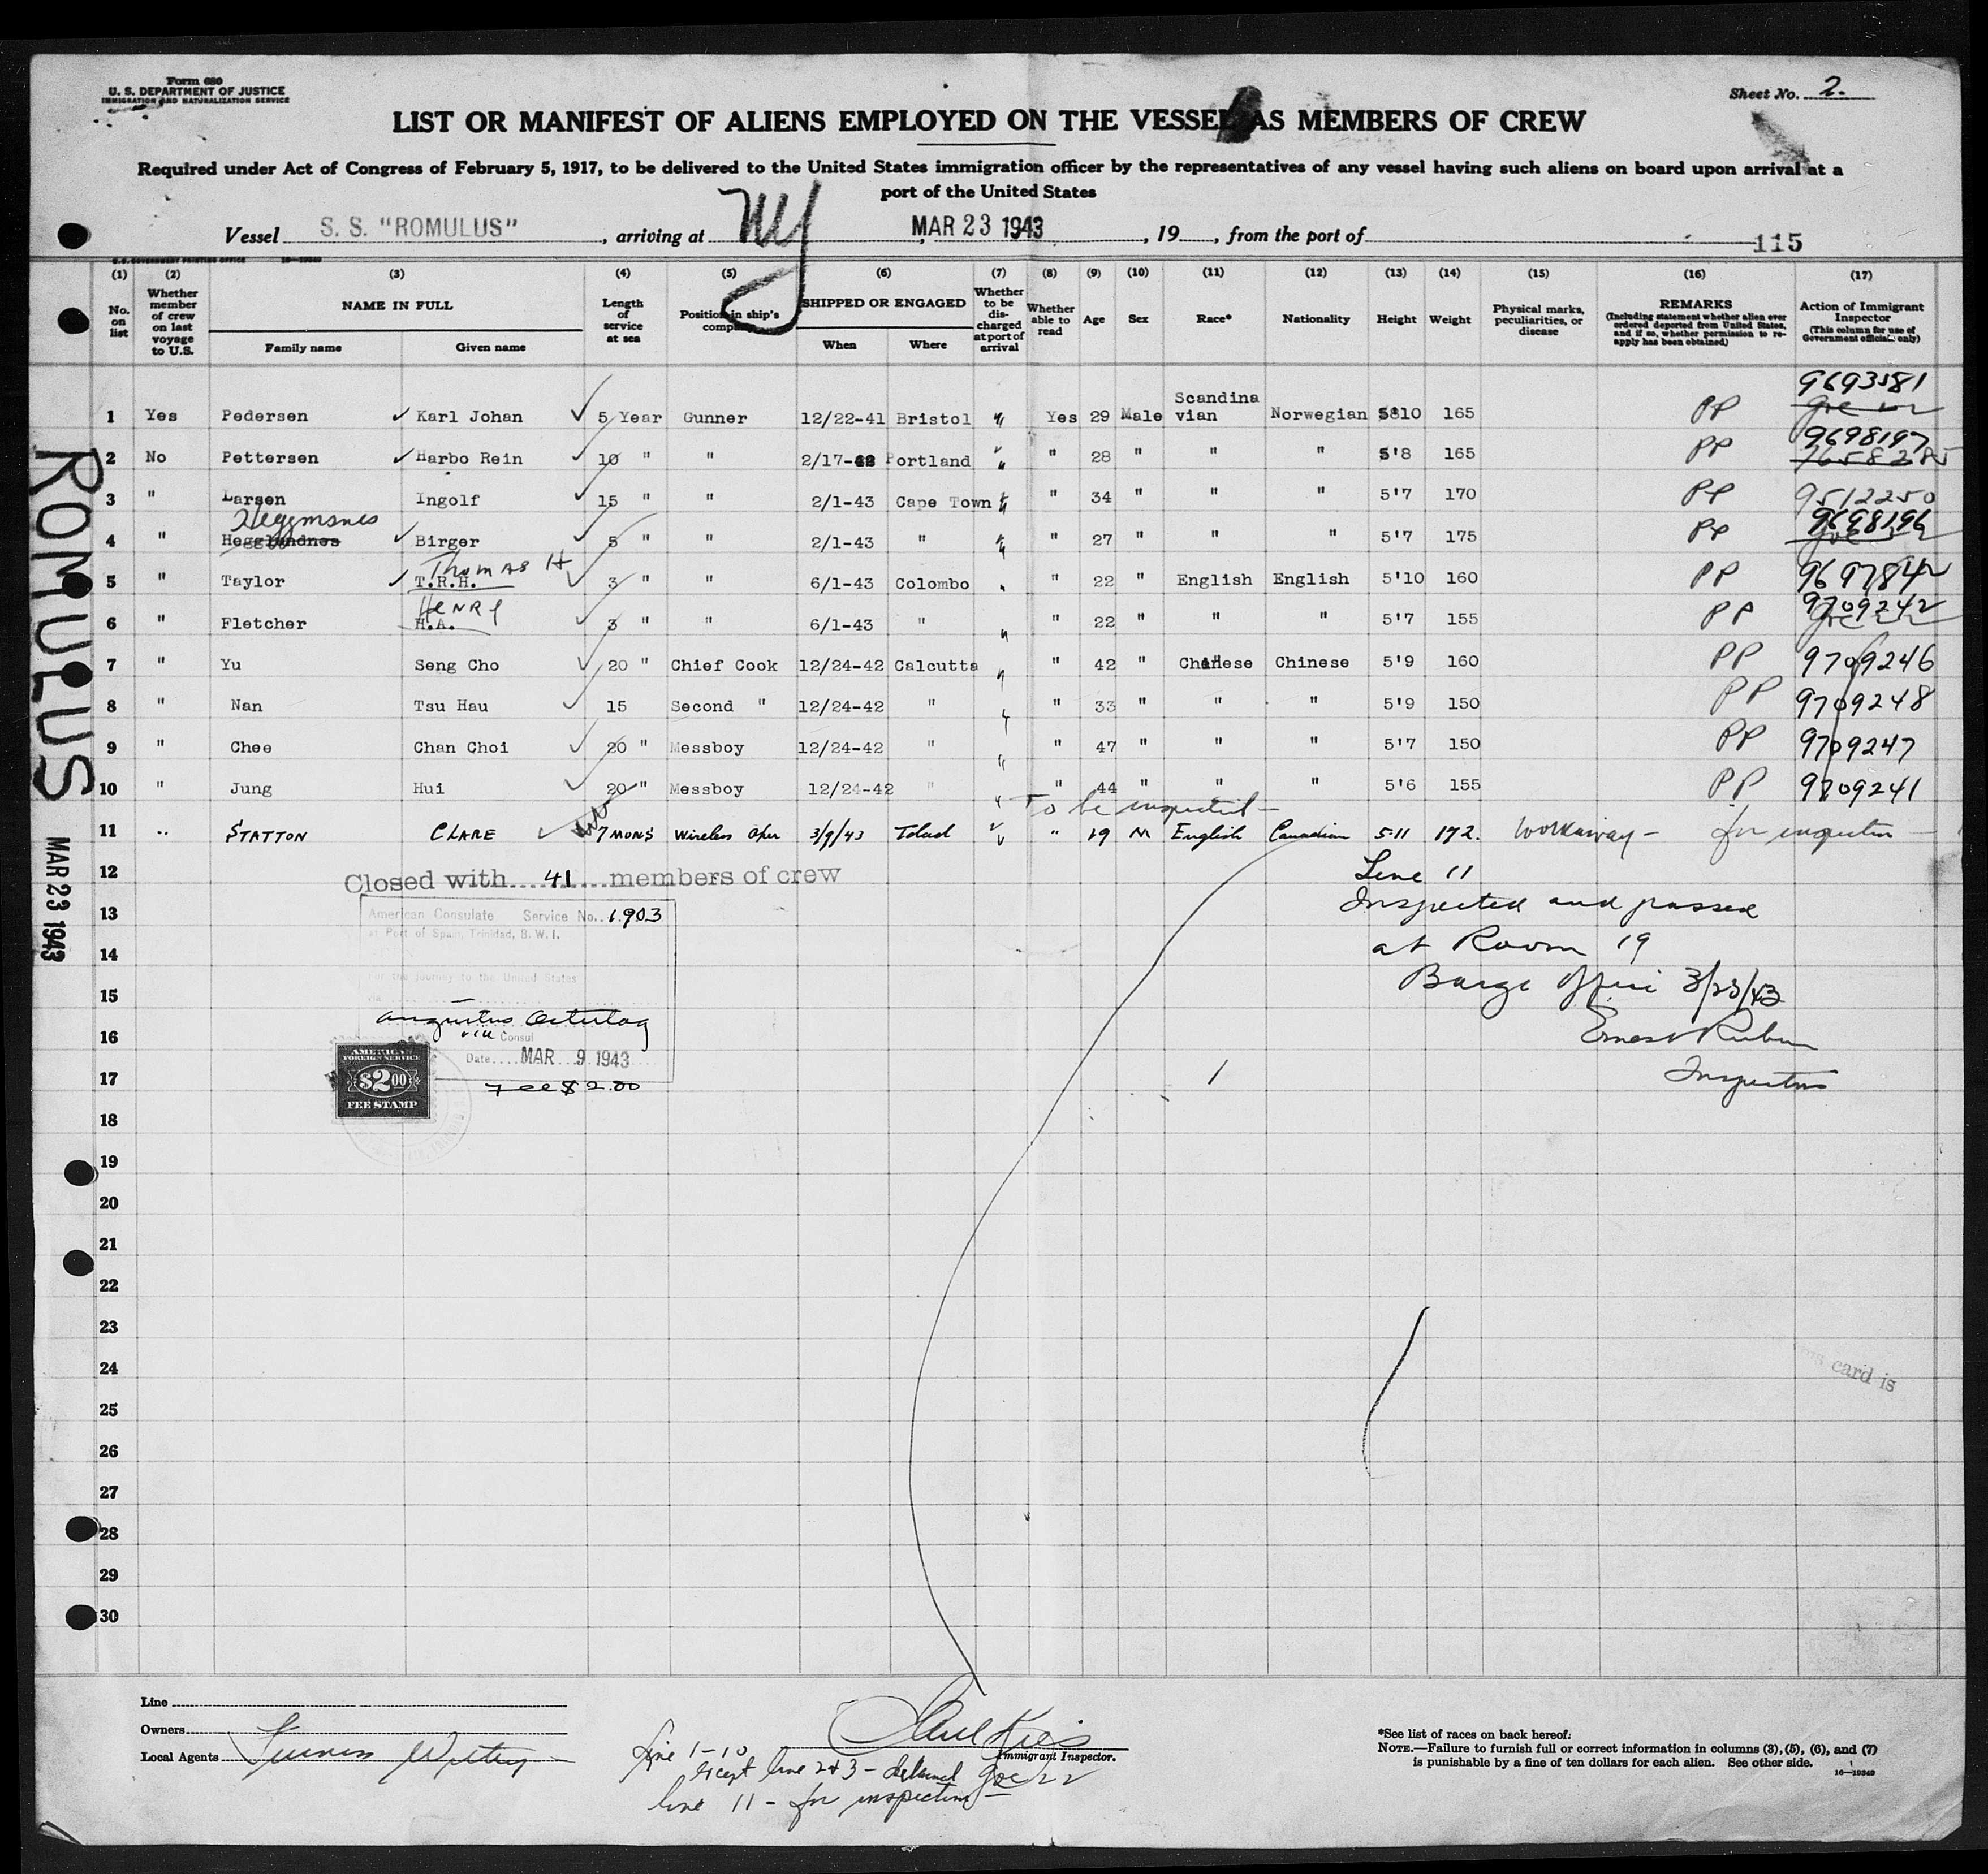 Form 680
U. S. DEPARTMENT OF JUSTICE
IMMIGRATION AND NATURALIZATION SERVICE
Sheet No. 2.
LIST OR MANIFEST OF ALIENS EMPLOYED ON THE VESSEL AS MEMBERS OF CREW
Required under Act of Congress of February 5, 1917, to be delivered to the United States immigration officer by the representatives of any vessel having such aliens on board upon arrival at a
port of the United States
Vessel S. S. "ROMULUS", arriving at NY, MAR 23 1943, 19, from the port of
115
(1) (2) (3) (4) (5) (6) (7) (8) (9) (10) (11) (12) (13) (14) (15) (16) (17)
No. on list
Whether member of crew on last voyage to U.S.
NAME IN FULL
Family name Given name
Length of service at sea
Position in ship's company
SHIPPED OR ENGAGED
When Where
Whether to be discharged at port of arrival
Whether able to read
Age Sex Race* Nationality Height Weight
Physical marks, peculiarities, or disease
REMARKS
(Including statement whether alien ever ordered deported from United States, and if so, whether permission to reapply has been obtained)
Action of Immigrant Inspector
(This column for use of Government officials only)
1 Yes Pedersen Karl Johan 5 Year Gunner 12/22-41 Bristol " Yes 29 Male Scandina vian Norwegian 5'10 165 PP 9693581
2 No Pettersen Harbo Rein 10 " " 2/17-42 Portland " " 28 " " " 5'8 165 PP 9698197
3 " Larsen Ingolf 15 " " 2/1-43 Cape Town " " 34 " " " 5'7 170 PP 9512250
4 " Birger 5 " " 2/1-43 " " " 27 " " " 5'7 175 PP 9698196
5 " Taylor T.R.H. Thomas H 3 " " 6/1-43 Colombo " " 22 " English English 5'10 160 PP 9697842
6 " Fletcher H.A. HENRY 3 " " 6/1-43 " " " 22 " " " 5'7 155 PP 9709242
7 " Yu Seng Cho 20 " Chief Cook 12/24-42 Calcutta " " 42 " Chinese Chinese 5'9 160 PP 9709246
8 " Nan Tsu Hau 15 Second " 12/24-42 " " " 33 " " " 5'9 150 PP 9709248
9 " Chee Chan Choi 20 " Messboy 12/24-42 " " " 47 " " " 5'7 150 PP 9709247
10 " Jung Hui 20 " Messboy 12/24-42 " " " 44 " " " 5'6 155 PP 9709241
To be inspected
11 " STATTON CLARE 7 MONS Wireless Oper 3/9/43 " " 19 M English Canadian 5-11 172. Workaway - for inspection
12
Closed with 41 members of crew
Line 11
13
Inspected and passed
American Consulate Service No. 1903
at Port of Spain, Trinidad, B. W. I.
14
at Room 19
for the journey to the United States
15
Barge Office 3/23/43
via
16
Vice Consul
Ernest Rubin
Date MAR 9 1943
17
Inspector
Fee $2.00
AMERICAN
FOREIGN SERVICE
$2.00
FEE STAMP
18
19
20
21
22
23
24
card is
25
26
27
28
29
30
ROMULUS
MAR 23 1943
Line
Owners
Local Agents Furness Withy
Immigrant Inspector.
Line 1-10
except line 2 & 3 - detained
line 11 - for inspection
*See list of races on back hereof.
NOTE.—Failure to furnish full or correct information in columns (3), (5), (6), and (7)
is punishable by a fine of ten dollars for each alien. See other side.
16—19349